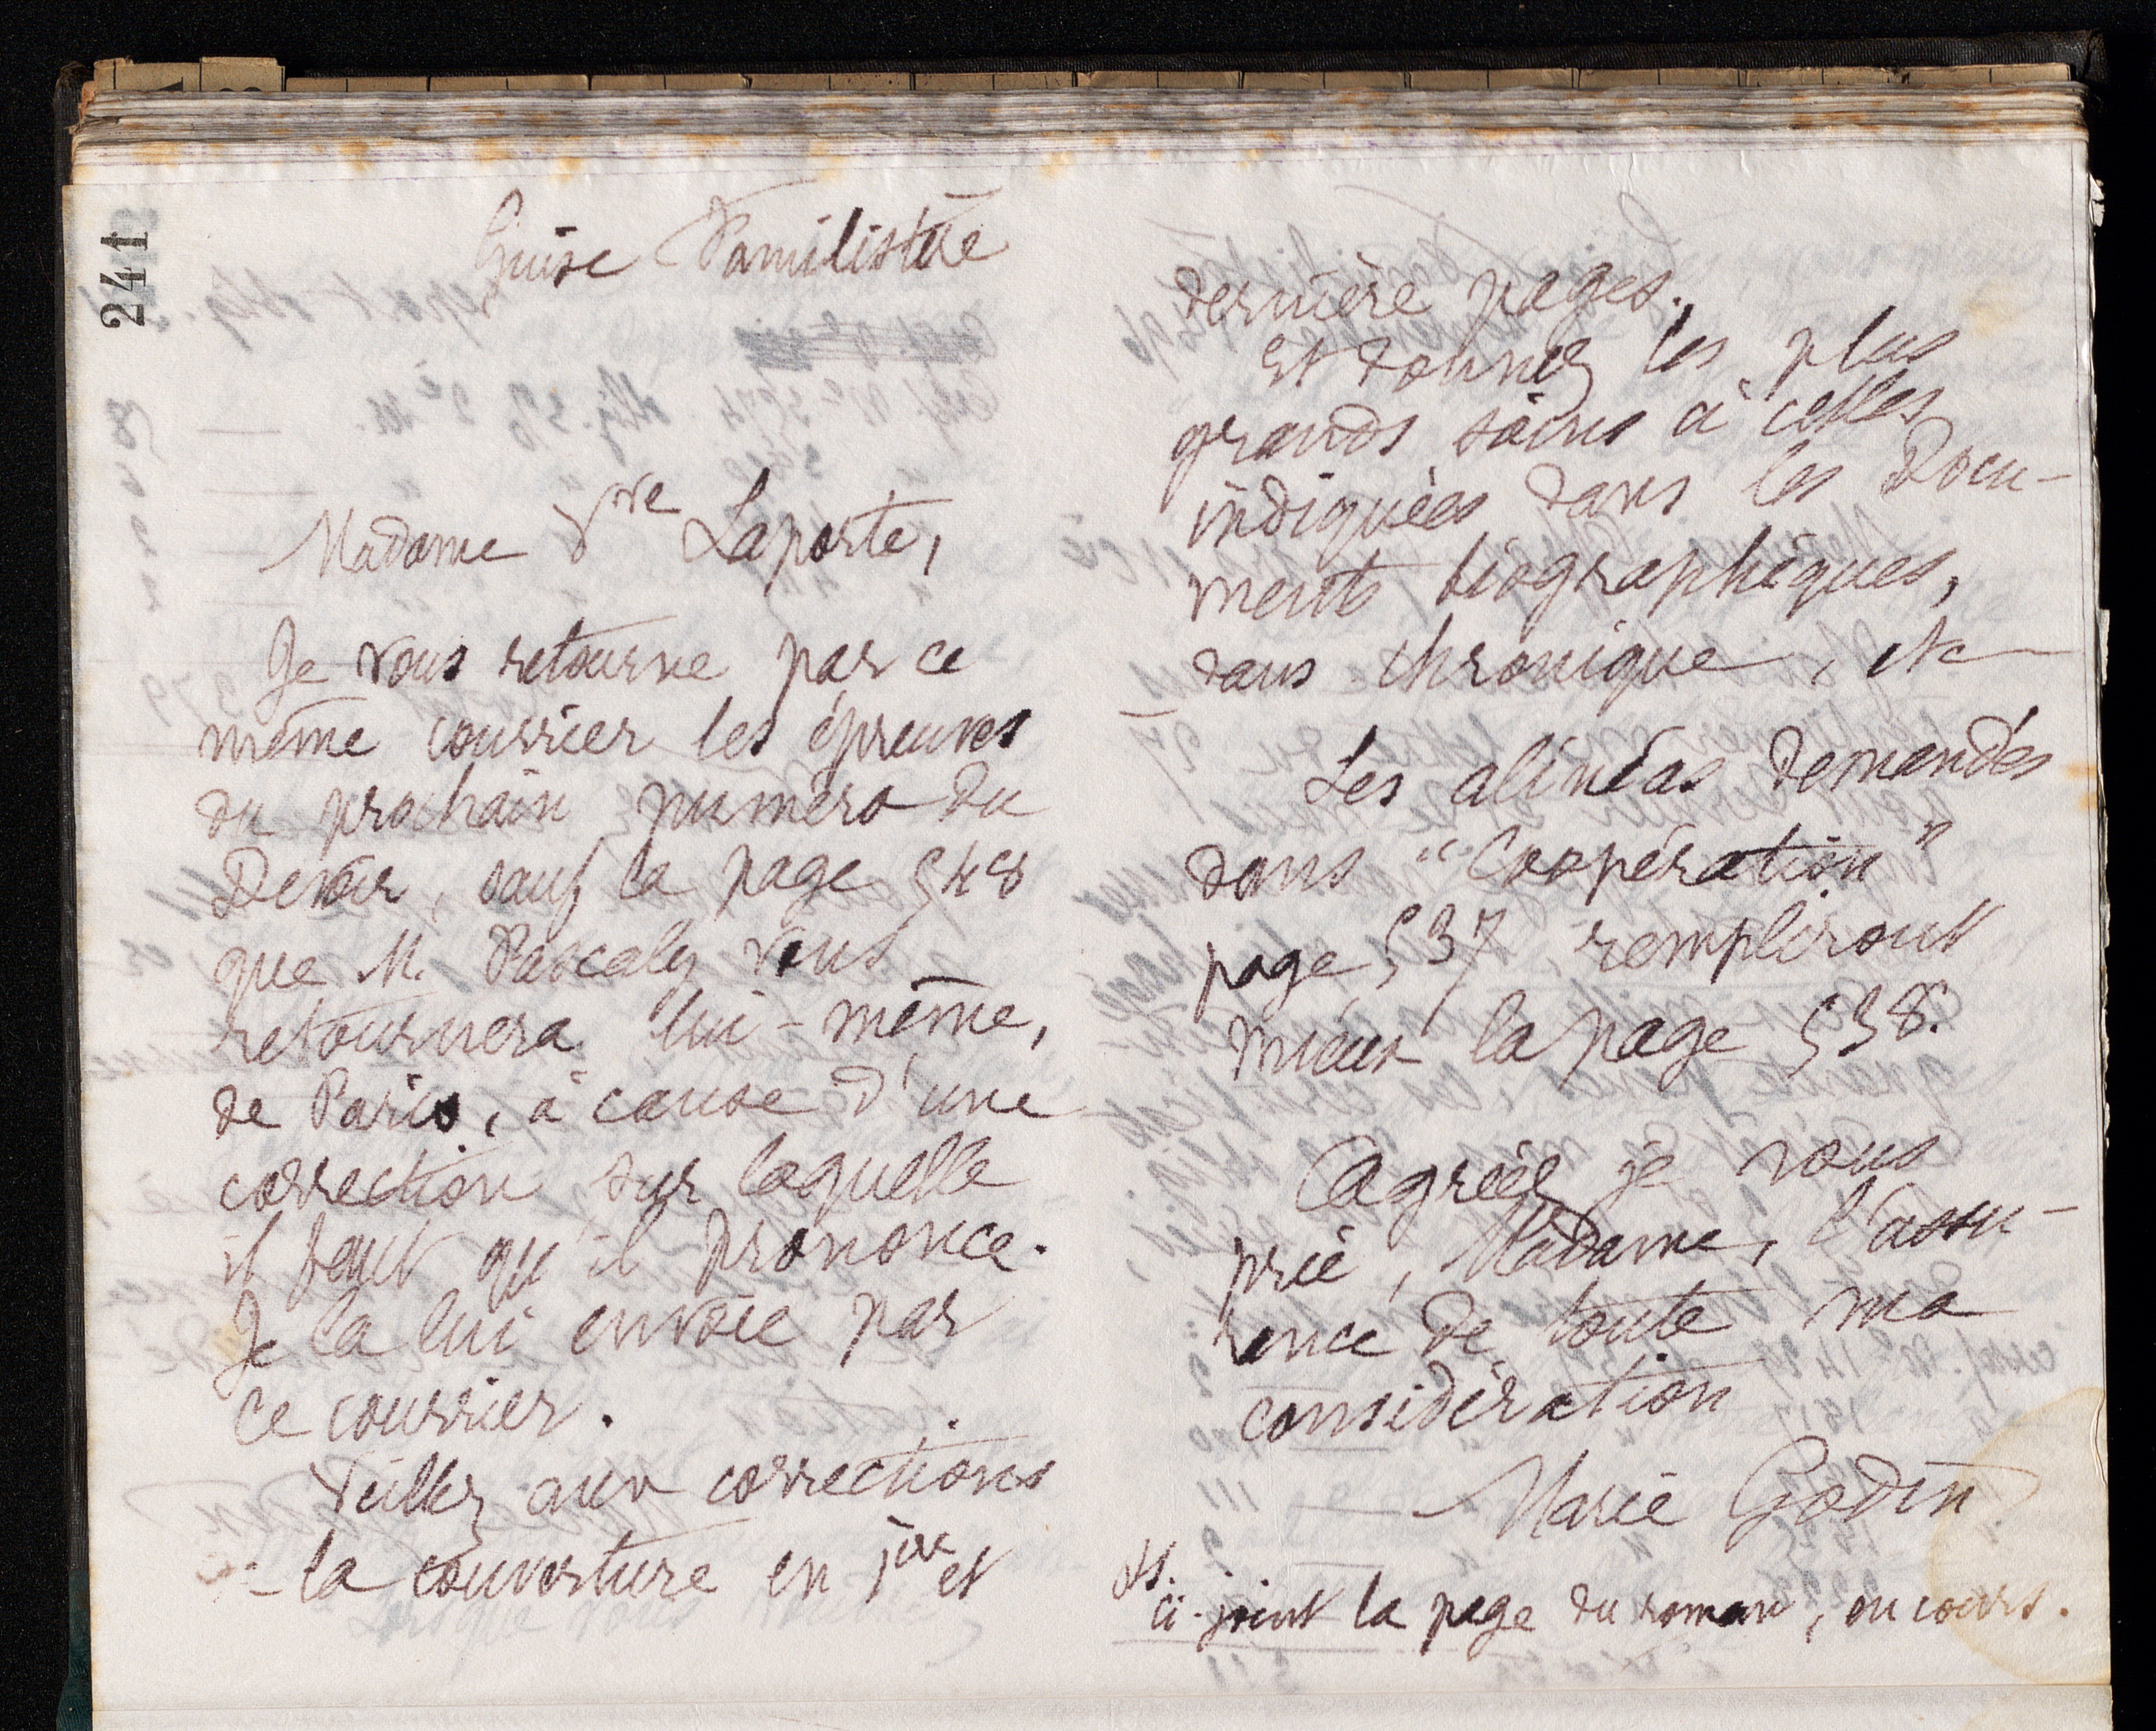 241
Guise Familistère
Madame Vve Laporte,
Je vous retourne par ce
même courrier les épreuves
du prochain numéro du
Devoir, sauf la page 548
que M. Pascaly vous
retournera lui-même,
de Paris, à cause d'une
correction sur laquelle
il faut qu'il prononce.
Je la lui envoie par
ce courrier.
Veillez aux corrections
la couverture en 1ère et
dernière pages.
Et donnez les plus
grands soins à celles
indiquées dans les Docu-
ments biographiques,
dans chronique, etc
Les alinéas demandés
dans "Coopération"
page 537 rempliront
mieux la page 538.
Agréez je vous
prie, Madame, l'assu-
rance de toute ma
considération
Marie Godin
ci-joint la page du roman, en cours.